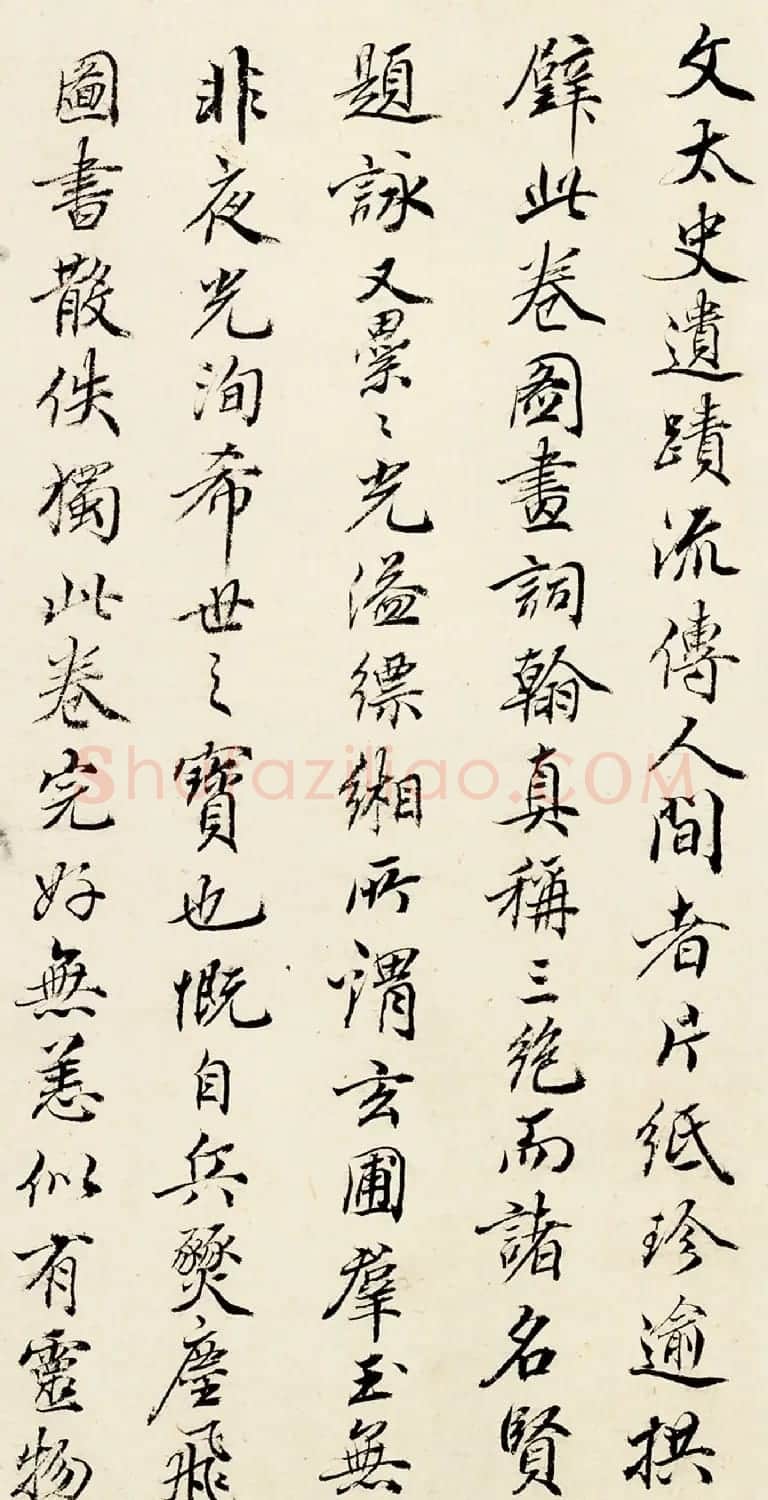 文太史遺蹟流傳人間者片紙珍逾拱
璧此卷圖畫詞翰真稱三絶而諸名賢
題詠又纍〻光溢縹緗所謂玄圃羣玉無
非夜光洵希世之寶也慨自兵燹塵飛
圖書散佚獨此卷完好無恙似有靈物
Shufaziliao.COM